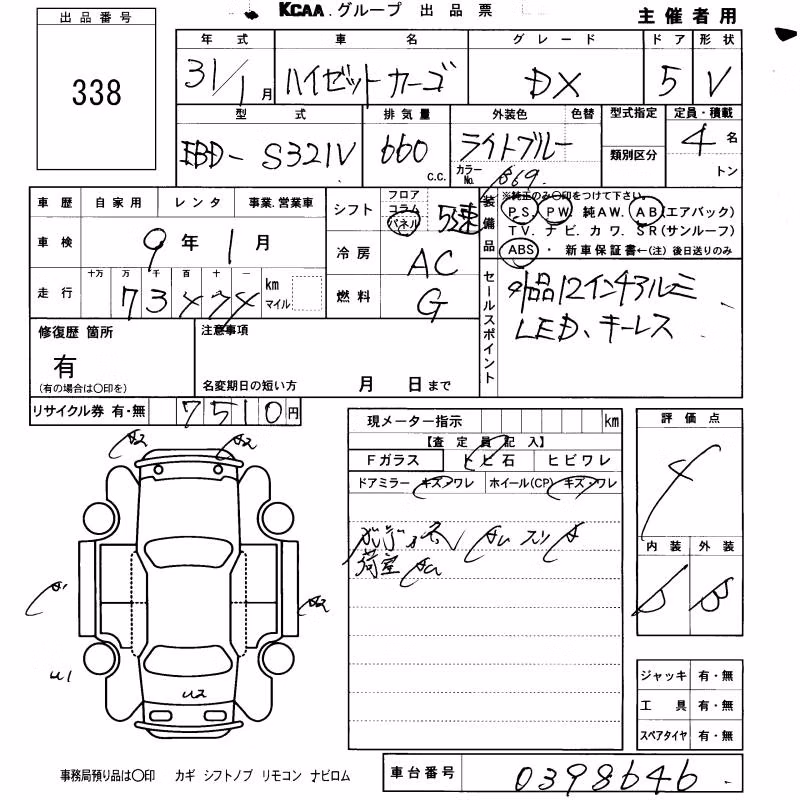 KCAA.グループ 出品票
主催者用
出品番号
338
年式 車名 グレード ドア 形状
31/1月 ハイゼットカーゴ DX 5 V
型式 排気量 外装色 色替 型式指定 定員・積載
EBD-S321V 660 c.c. ライトブルー 4名
カラーNo. B69. 類別区分 トン
車歴 自家用 レンタ 事業.営業車
車検 9年1月
走行 十万 万 千 百 十 一
73474 km マイル
シフト フロア コラム パネル 5速
冷房 AC
燃料 G
装備品 ※純正のみ〇印をつけて下さい。
P.S. P.W. 純AW. AB(エアバック)
T.V. ナビ. カワ. SR(サンルーフ)
ABS・新車保証書←(注)後日送りのみ
セールスポイント 社外品12インチアルミ
LED、キーレス
修復歴 箇所 注意事項
有
(有の場合は〇印を) 名変期日の短い方 月 日まで
リサイクル券 有・無 7510円
現メーター指示 km
【査定員記入】
Fガラス トビ石 ヒビワレ
ドアミラー キズ・ワレ ホイール(CP) キズ・ワレ
荷室
評価点
4
内装 外装
B B
A2 A2
A1 A2
U1
U2
ジャッキ 有・無
工具 有・無
スペアタイヤ 有・無
事務局預り品は〇印 カギ シフトノブ リモコン ナビロム
車台番号 0398646